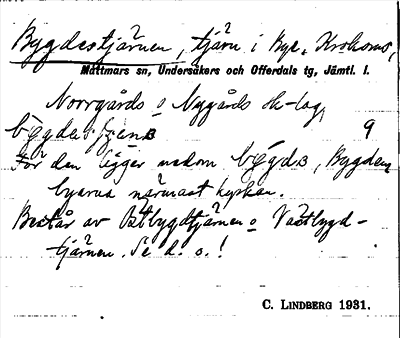 Bygdestjärnen, tjärn i Bye, Krokoms,
Mattmars sn, Undersåkers och Offerdals tg, Jämtl. l.
Norrgårds o Nygårds sk-lag,
9
För den ligger nedom Bygden,
byarna närmast kyrkan.
Består av Östbygdtjärnen o Västbygd-
tjärnen. Se d. o.!
C. LINDBERG 1931.